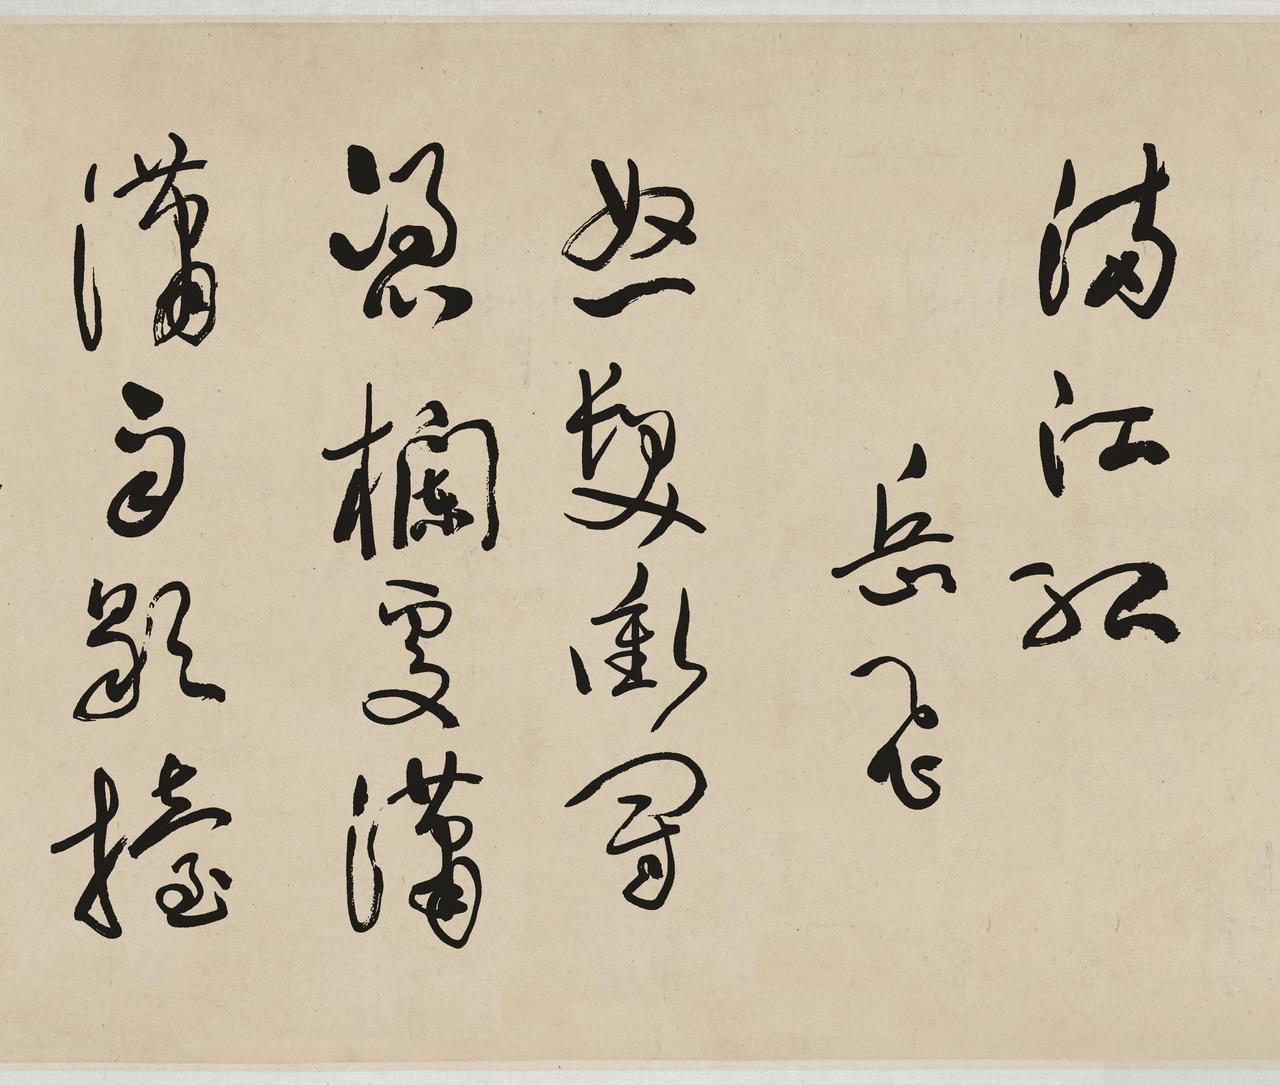 滿江紅
岳飛
怒髮衝冠
憑欄處瀟
瀟雨歇擡